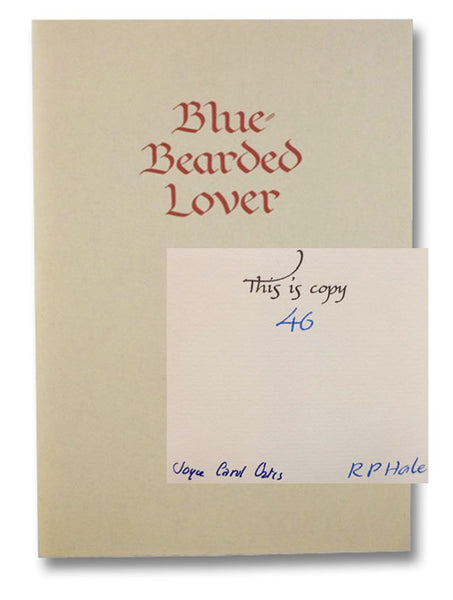 Blue-
Bearded
Lover
This is copy
46
Joyce Carol Oates
R P Hale